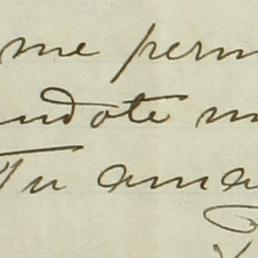 me perm
ndote m
Tu ama